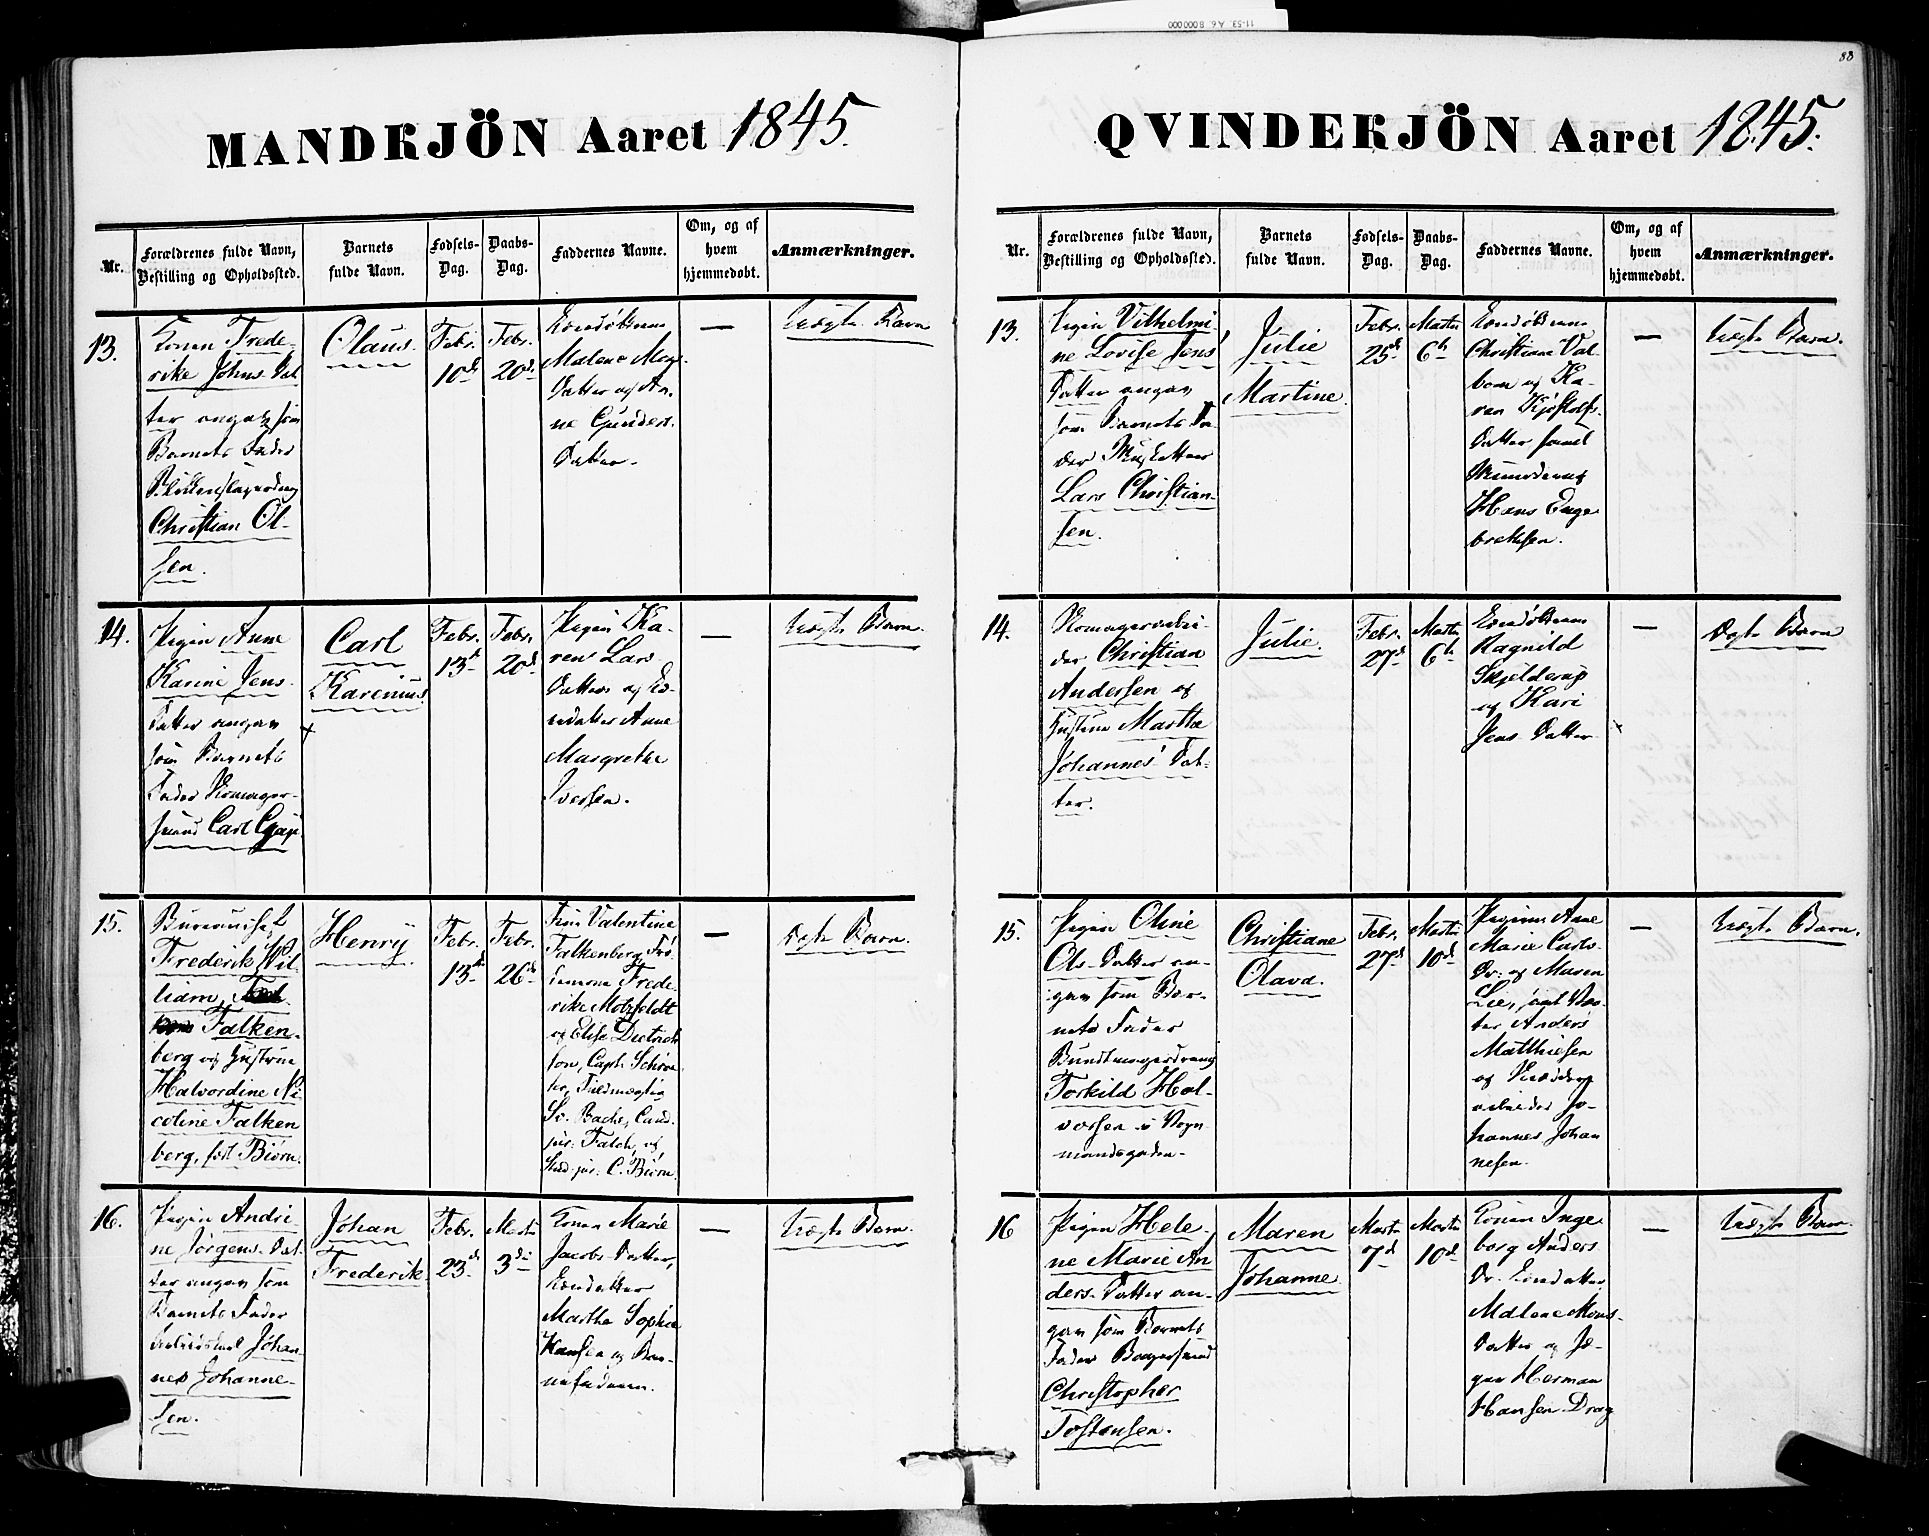 11-53. A6. 8000000
88
MANDKJÖN Aaret 1845.
Nr.
Forældrenes fulde Navn,
Bestilling og Opholdssted.
Barnets
fulde Navn.
Fødsels-
Dag.
Daabs-
Dag.
Faddernes Navne.
Om, og af
hvem
hjemmedøbt.
Anmærkninger.
13.
Konen Frede-
rike Johns Dat-
ter angav som
Barnets Fader
Christian Ol-
sen.
Olaus.
Febr.
10de
Febr.
20de
Malene Mag
Datter og An-
ne Gunders-
Datter.
—
Uægte Barn
14.
Pigen Anne
Karine Jens-
Datter angav
som Barnets
Fader
svend Carl Gjap
Carl
Karenius
Febr.
13de
Febr.
20de
Pigen Ka-
ren Lars
Datter og En-
Anne
Margrethe
Iversen.
—
Uægte Barn.
15.
Frederik Wil-
liam
Falken-
berg og Hustrue
Halvordine Ni-
coline Falken
berg, født Biørn.
Henry
Febr.
13de
Febr.
26de
Frue Valentine
Falkenberg, Frø-
Frede-
rike Motzfeldt
og Elise Dietrich
son, Capt. Schrø-
ter,
Sv. Bache, Cand.
jur. Falch, og
Stud. jur. C. Biørn
—
Ægte Barn.
16.
Pigen Andri-
ne Jørgens-Dat-
ter angav som
Barnets Fader
Johan-
nes Johanne-
sen.
Johan
Frederik
Febr.
23de
Marts
3die
Konen Marie
Jacobs-Datter,
Martha Sophie
Hansen og Bar-
nefaderen.
—
Uægte Barn.
QVINDEKJÖN Aaret 1845.
Nr.
Forældrenes fulde Navn,
Bestilling og Opholdssted.
Barnets
fulde Navn.
Fødsels-
Dag.
Daabs-
Dag.
Faddernes Navne.
Om, og af
hvem
hjemmedøbt.
Anmærkninger.
13.
Pigen Vilhelmi-
ne Lovise Jens
Datter angav
som Barnets Fa-
der Musketeer
Lars Christian-
sen.
Julie
Martine.
Febr.
25de
Marts
6te
Christiane Val-
bom og Ka-
ren Kjøstolfs-
Datter samt
Hans Enge-
brektsen.
—
Uægte Barn.
14.
der Christian
Andersen og
Hustrue Martha
Johannes' Dat-
ter.
Julie.
Febr.
27de
Marts
6te
Ragnild
Skjelderup
og Kari
Jens-Datter
Ægte Barn
15.
Pigen Oline
Ols-Datter an-
gav som Bar-
nets Fader
Bundtmagerdreng
Torkild Hal-
vorsen i Vogn-
mandsgaden.
Christiane
Olava.
Febr.
27de
Marts
10de
Pigerne Anne
Marie Carls-
Dr. og Maren
Lie, samt
Anders
Matthiesen
og
arbeider Jo-
hannes Johan
nesen.
—
Uægte Barn.
16
Pigen Hele-
ne Marie An
ders-Datter an-
gav som Barnets
Fader Bagersvend
Christopher
Tostensen.
Maren
Johanne
Marts
7de
Marts
10de
Konen Inge-
borg Anders
Dr.
Malene Mons-
Datter og Jæ-
ger Herman
Hansen Drag
—
Uægte Barn.